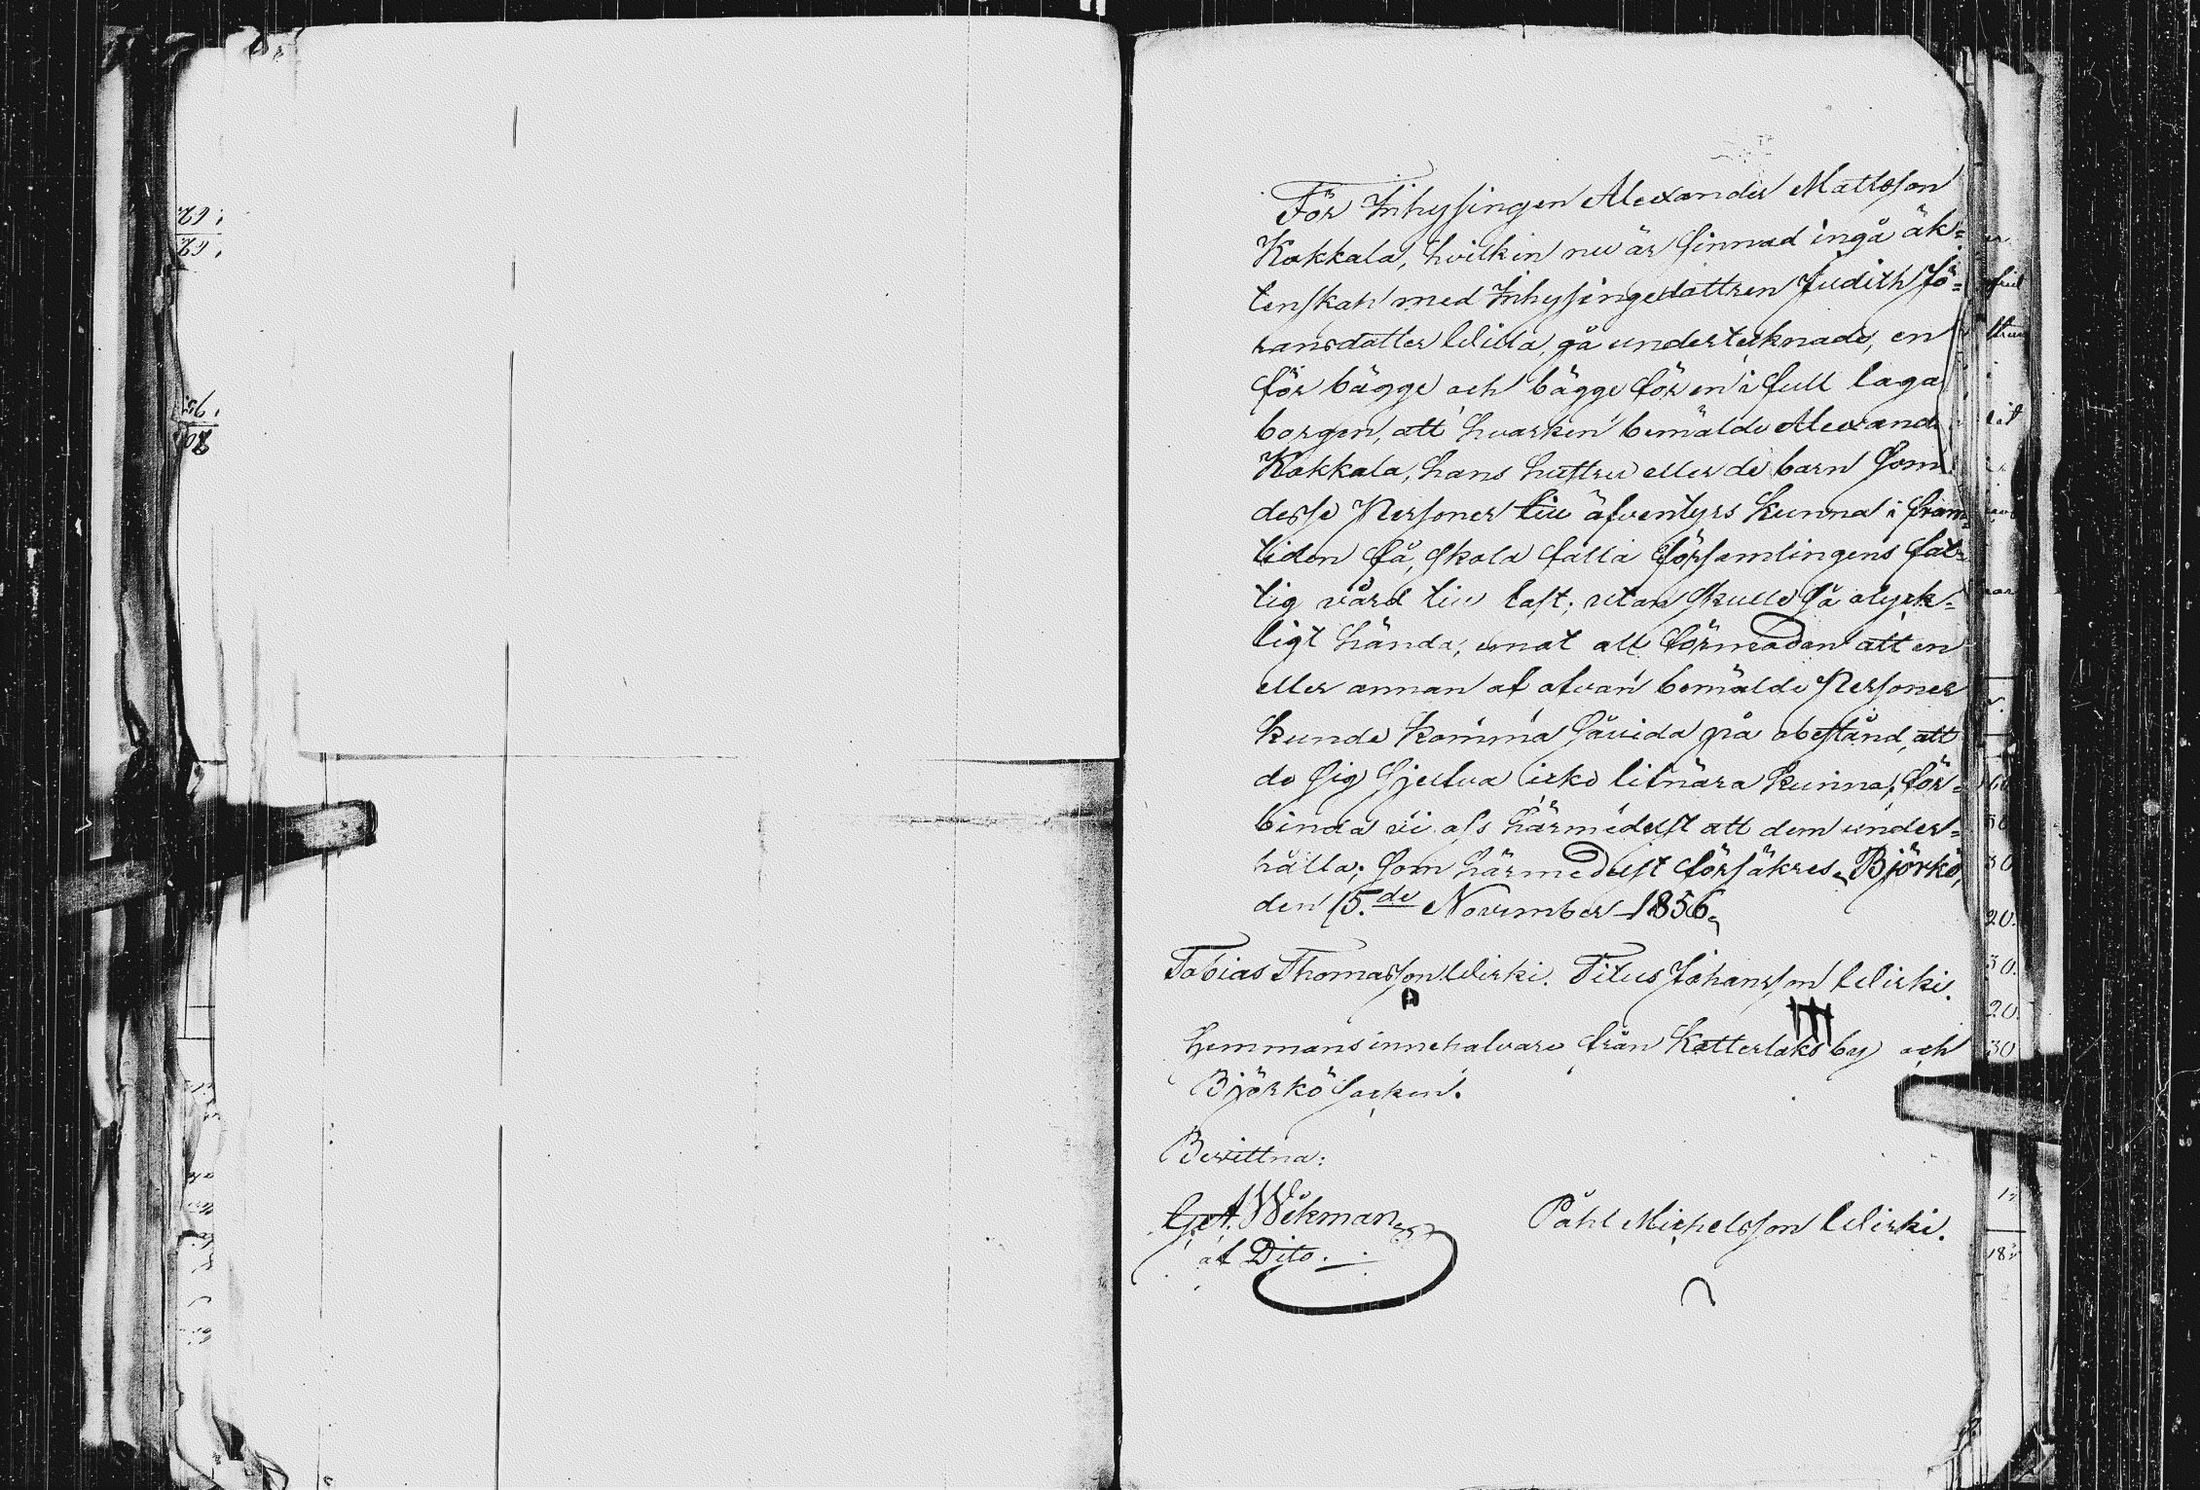 För Inhysingen Alexander Mattsson
Kokkala, hvilken nu är sinnad ingå äk-
tenskap med Inhysingedottren Judith Jö-
ransdotter Willa, gå undertecknade, en
för bägge och bägge för en i full laga
borgen, att hvarken bemälde Alexand
Kokkala, hans hustru eller de barn som
desse Personer till äfventyrs kunna i fram-
tiden få, skola falla församlingens fat-
tig vård till last; utan skulle så olyck-
ligt hända, emot all förmodan att en
eller annan af ofvan bemälde Personer
kunde komma såvida på obestånd, att
de sig sjelfva icke lifnära kunna; för-
binda vi oss härmedelst att dem under-
hålla; som härmedelst försäkres. Björkö,
den 15.de November 1856.
Tobias Thomasson Wirki. Titus Johansson Wirki.
Hemmansinnehafvare från Katterlaks by och
Björkö socken.
Bevittna:
Wikman Påhl Michelsson Wirki.
af Dito.